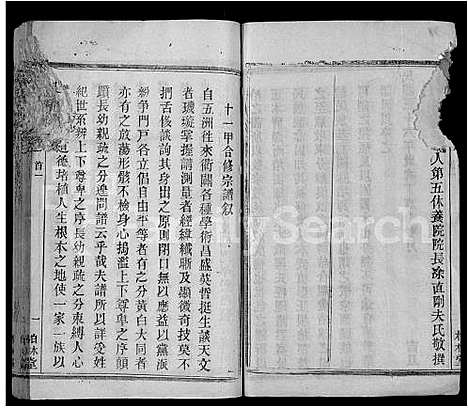 人第五休養院院長涂直剛夫氏敬撰
十一甲合修宗譜敘
自五洲往來衝闢各種學術昌盛英哲挺生談天文
者璣璇掌握講測量者經緯纖晰及顯微奇技莫不
捫舌修談詢其身出之原則閉口無以應益以黨派
紛爭門戶各立倡自由平等者有分黃白大同者
亦有之放蕩形骸不檢身心搗濫上下尊卑之序顛
顛長幼親疏之分遑問譜云乎哉夫譜所以詳受姓
紀世系辨上下尊卑之序長幼親疏之分束縛人心
道德培植人生根本之地使一家一族以
首一
一
柏林堂
FamilySearch